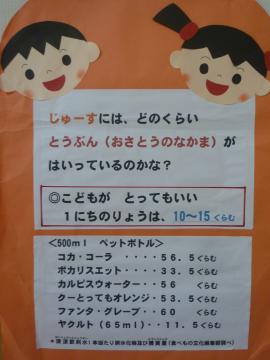 じゅーすには、どのくらい
とうぶん(おさとうのなかま)が
はいっているのかな?
◎こどもが とってもいい
1にちのりょうは、10~15ぐらむ
<500ml ペットボトル>
コカ・コーラ ・・・・56.5ぐらむ
ポカリスエット・・・・33.5ぐらむ
カルピスウォーター・・56 ぐらむ
クーとってもオレンジ・53.5ぐらむ
ファンタ・グレープ・・60 ぐらむ
ヤクルト(65ml)・・11.5ぐらむ
*清涼飲料水1本当たり炭水化物及び糖質量(食べもの文化編集部調べ)